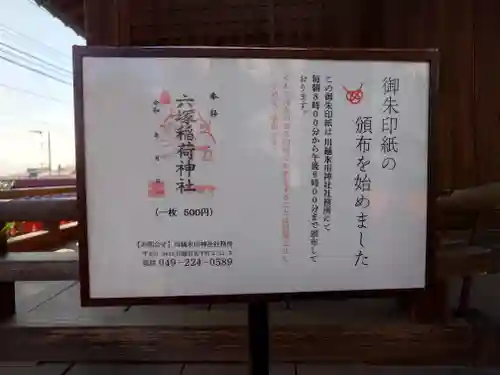 御朱印紙の
頒布を始めました
この御朱印紙は川越氷川神社社務所にて
毎朝8時00分から午後6時00分まで頒布して
おります。
奉拝
六塚稲荷神社
令和 年 月 日
(一枚 500円)
【お問合せ】川越氷川神社社務所
電話 049-224-0589